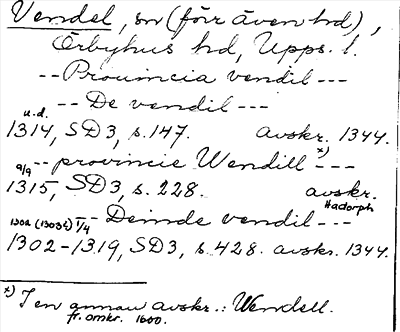 Vendel, sn (förr även hd),
Örbyhus hd, Upps. l.
-- Prouincia vendil ---
-- De vendil ---
u.d.
1314, SD3, s. 147. avskr. 1344.
-- provincie Wendill x) ---
9/9
1315, SD3, s. 228. avskr.
Hadorph
1302 (1303?) 1/4 -- Deinde vendil ---
1302-1319, SD3, s. 428. avskr. 1344.
x) I en annan avskr.: Wendell.
fr. omkr. 1600.